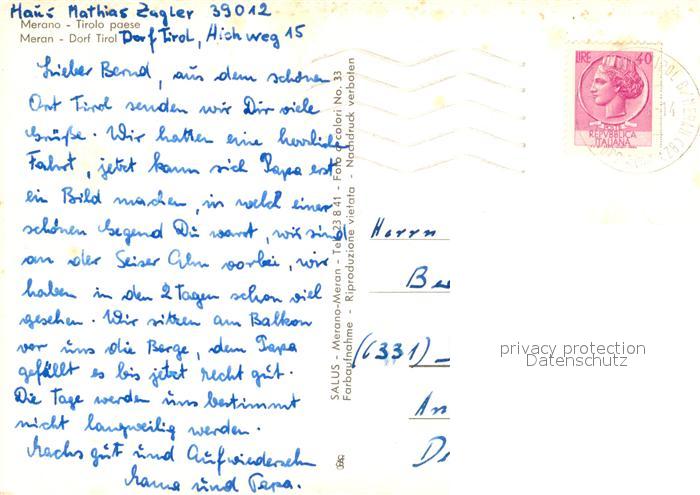 Haus Mathias Zagler 39012
Merano - Tirolo paese
Meran - Dorf Tirol Dorf Tirol, Aichweg 15
Lieber Bernd, aus dem schönen
Ort Tirol senden wir Dir viele
Grüße. Wir hatten eine herrliche
Fahrt, jetzt kann sich Papa erst
ein Bild machen, in welch einer
schönen Gegend Du warst, wir sind
an der Seiser Alm vorbei, wir
haben in den 2 Tagen schon viel
gesehen. Wir sitzen am Balkon
vor uns die Berge, dem Papa
gefällt es bis jetzt recht gut.
Die Tage werden uns bestimmt
nicht langweilig werden.
Machs gut und Aufwiedersehn
Mama und Papa.
SALUS - Merano-Meran - Tel. 23 8 41 - Fotocolori No. 33
Farbaufnahme - Riproduzione vietata - Nachdruck verboten
LIRE 40
POSTE
REPVBBLICA
ITALIANA
Herrn
Be
(6331)
An
De
privacy protection
Datenschutz